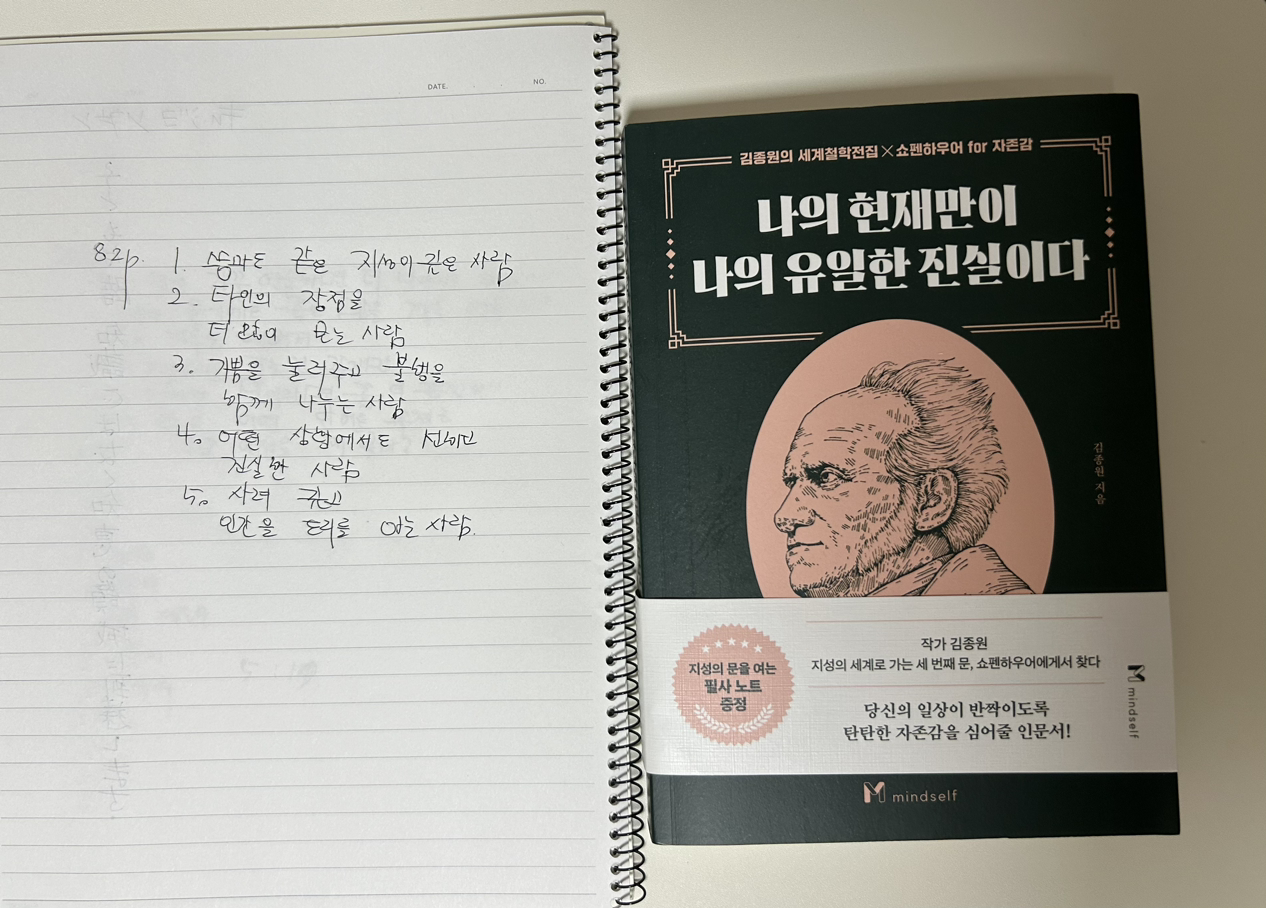 DATE.
NO.
82p. 1. 숲과도 같은 지성이 깊은 사람
2. 타인의 장점을
더 많이 보는 사람
3. 기쁨을 눌러주고 불행을
함께 나누는 사람
4. 어떤 상황에서도 선하고
진실한 사람
5. 사려 깊고
인간을 도리를 아는 사람.
김종원의 세계철학전집×쇼펜하우어 for 자존감
나의 현재만이
나의 유일한 진실이다
김종원 지음
지성의 문을 여는
필사 노트
증정
작가 김종원
지성의 세계로 가는 세 번째 문, 쇼펜하우어에게서 찾다
당신의 일상이 반짝이도록
탄탄한 자존감을 심어줄 인문서!
mindself
mindself